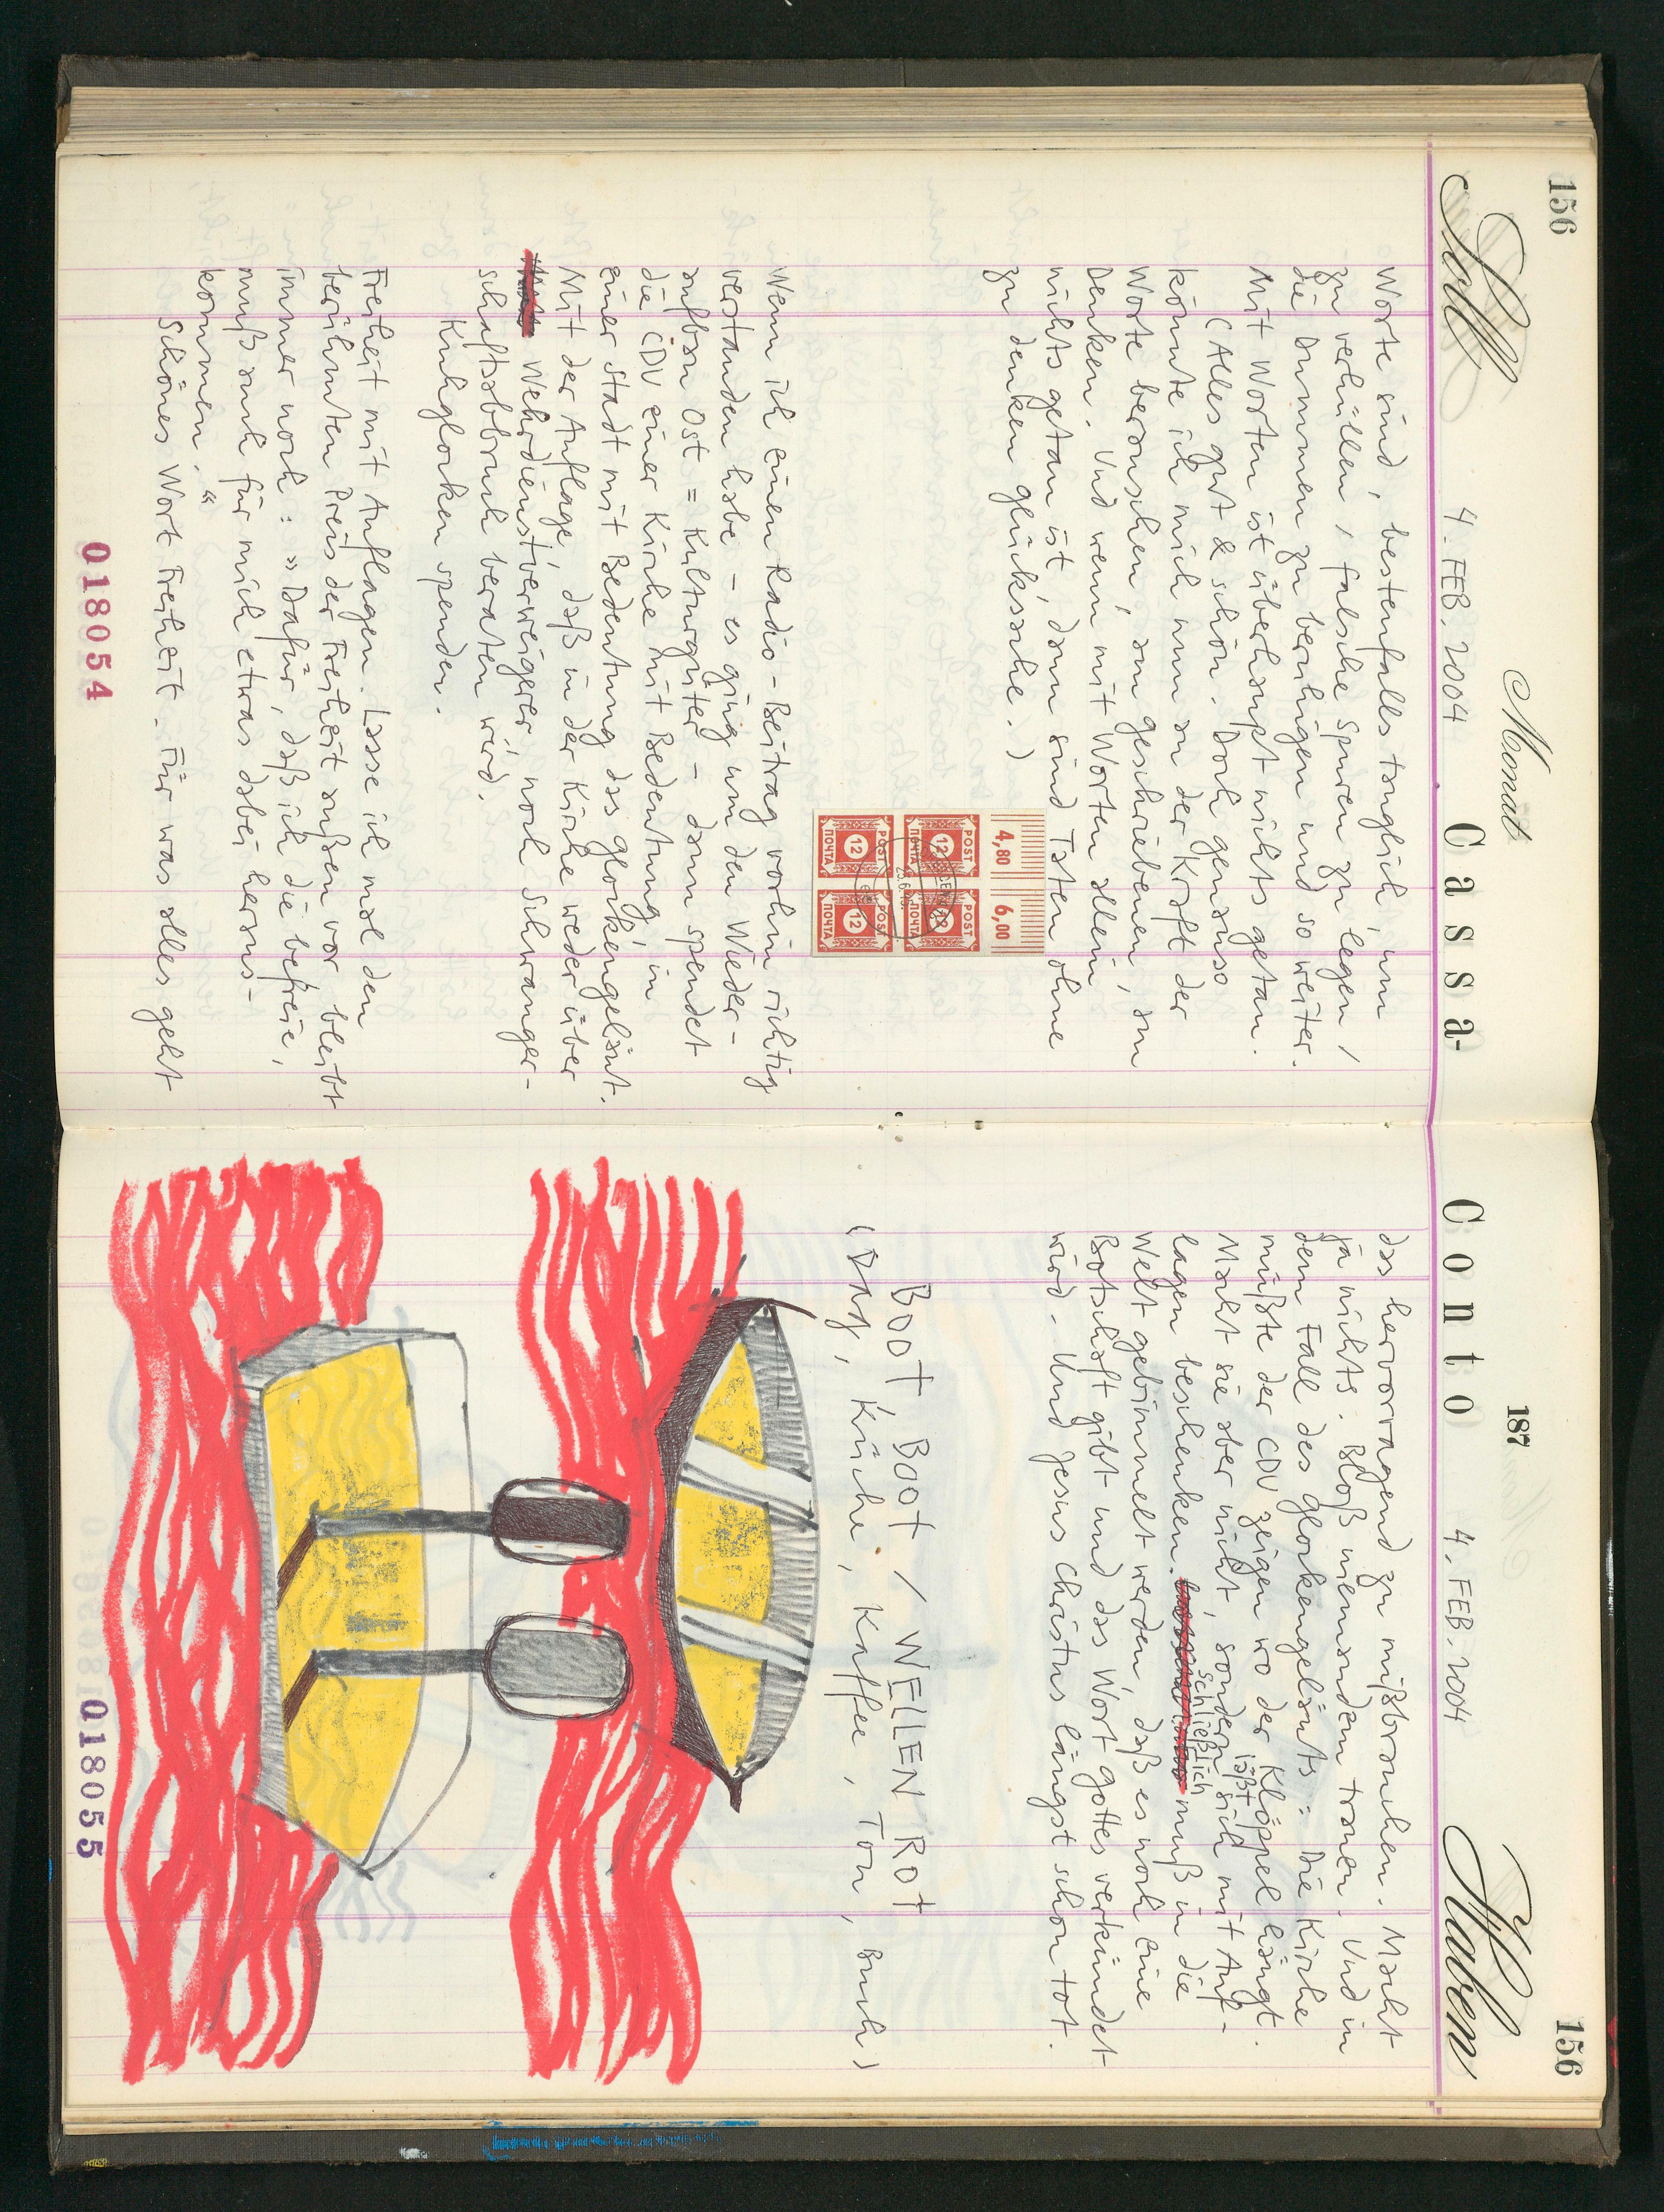 156
Soll
Monat
4. FEB. 2004
Cassa-
Worte sind, bestenfalls tauglich, um
zu verhüllen / falsche Spuren zu legen /
die Dummen zu beruhigen und so weiter.
Mit Worten ist überhaupt nichts getan.
(Alles gut & schön. Doch genauso
könnte ich mich nun an der Kraft der
Worte berauschen, am geschriebenen, am
Denken. Und wenn mit Worten allein
nichts getan ist, dann sind Taten ohne
zu denken glücksache.)
4,80
6,00
POST
12
ПОЧТА
POST
12
ПОЧТА
POST
12
ПОЧТА
POST
12
ПОЧТА
Wenn ich einen Radio-Beitrag vorhin richtig
verstanden habe – es ging um den Wieder-
aufbau Ost = Kulturgüter – dann spendet
die CDU einer Kirche mit Bedeutung, in
einer Stadt mit Bedeutung das glockengeläut.
Mit der Auflage, daß in der Kirche weder über
Wehrdienstverweigerer, noch Schwanger-
schaftsabbruch beraten wird.
Kuhglocken spenden.
Freiheit mit Auflagen. Lasse ich mal den
berühmten Preis der Freiheit außen vor bleibt
immer noch: »Dafür, daß ich die befreie,
muß auch für mich etwas dabei heraus-
kommen.«
Schönes Wort Freiheit. Für was alles geht
018054
Conto
187
4. FEB. 2004
Haben
156
das hervorragend zu mißbrauchen. Macht
ja nichts. Bloß niemandem trauen. Und in
dem Fall des glockengeläuts: Die Kirche
müßte der CDU zeigen wo der Klöppel hängt.
Macht sie aber nicht, sondern läßt sich mit Auf-
lagen beschenken. schließlich muß in die
Welt gebimmelt werden, daß es noch eine
Botschaft gibt und das Wort gottes verkündet
wird. Und Jesus Christus längst schon tot.
BOOT BOOT / WELLEN ROT
(DAY, Küche, Kaffee, Ton, Buch)
018055